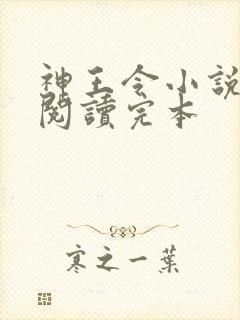 神王令小說
閱讀完本
寒之一葉